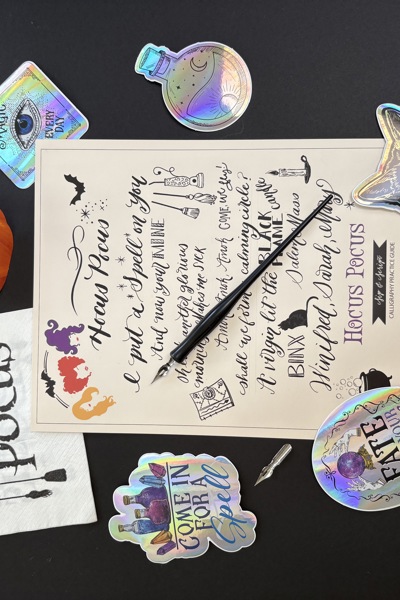 Hocus Pocus
I put a Spell on You
And now you're MINE
Oh look another glorious
morning makes me SICK
Amuck Amuck Amuck COME WE fly!
shall we form a calming circle?
A virgin lit the BLACK FLAME candle
BINX
Salem Mass
Winifred Sarah Mary
HOCUS POCUS
CALLIGRAPHY PRACTICE GUIDE
Magic
EVERY
DAY
POCUS
COME IN
FOR A
Spell
FATE